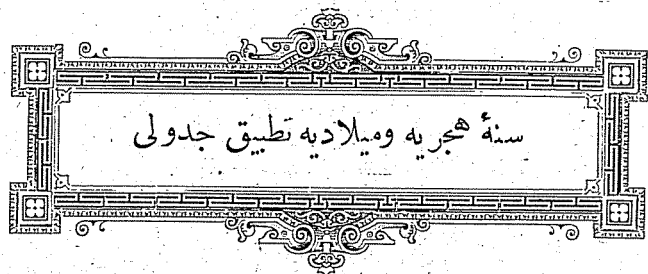 سنهٔ هجریه ومیلادیه تطبیق جدولی